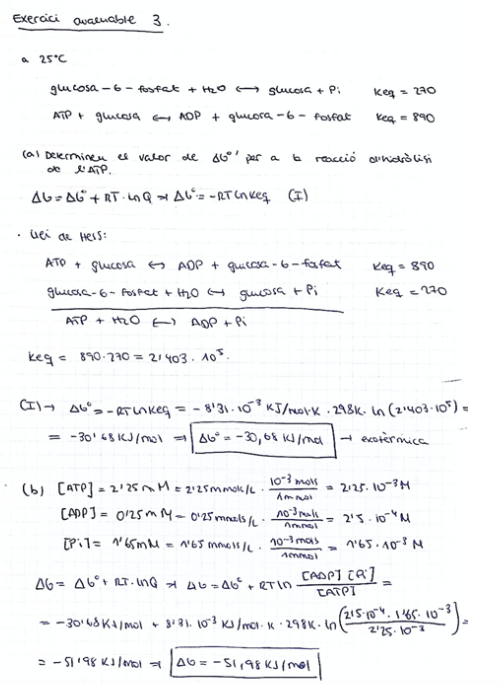 Exercici avaluable 3.
a 25°C
glucosa-6-fosfat + H2O ⟷ glucosa + Pi Keq = 270
ATP + glucosa ⟷ ADP + glucosa-6-fosfat Keq = 890
(a) Determineu el valor de ΔG°' per a la reacció d'hidròlisi
de l'ATP.
ΔG = ΔG° + RT·lnQ ⇒ ΔG° = -RTlnKeq (I)
· Llei de Hess:
ATP + glucosa ⟷ ADP + glucosa-6-fosfat Keq = 890
glucosa-6-fosfat + H2O ⟷ glucosa + Pi Keq = 270
ATP + H2O ⟷ ADP + Pi
Keq = 890·270 = 2'403·10⁵.
(I) → ΔG° = -RTlnKeq = -8'31·10⁻³ KJ/mol·K · 298K · ln(2'403·10⁵) =
= -30'68 KJ/mol ⇒ ΔG° = -30,68 KJ/mol → exotèrmica
(b) [ATP] = 2'25mM = 2'25mmols/L · 10⁻³ mols/1mmol = 2'25·10⁻³M
[ADP] = 0'25mM = 0'25mmols/L · 10⁻³ mols/1mmol = 2'5·10⁻⁴M
[Pi] = 1'65mM = 1'65mmols/L · 10⁻³ mols/1mmol = 1'65·10⁻³M
ΔG = ΔG° + RT·lnQ ⇒ ΔG = ΔG° + RTln [ADP][Pi]/[ATP] =
= -30'68KJ/mol + 8'31·10⁻³ KJ/mol·K · 298K · ln(2'5·10⁻⁴·1'65·10⁻³/2'25·10⁻³) =
= -51'98KJ/mol ⇒ ΔG = -51,98KJ/mol